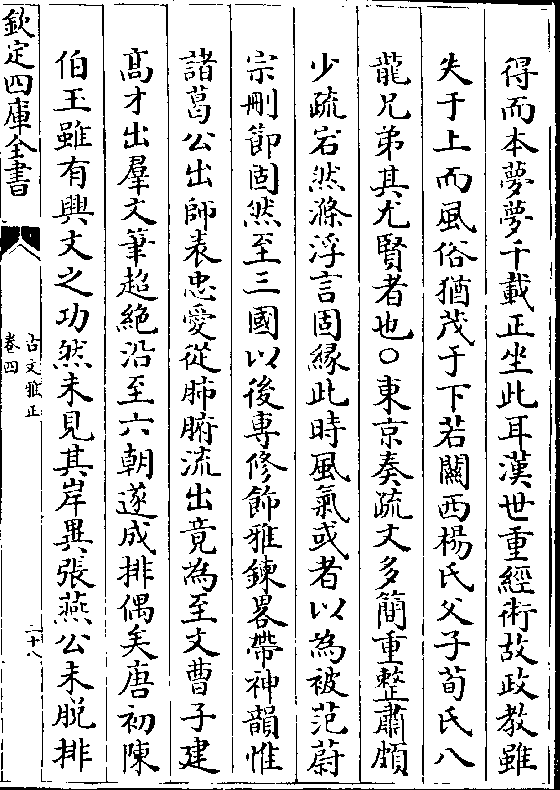 得而本夢夢千載正坐此耳漢世重經術故政教雖
失于上而風俗猶茂于下若關西楊氏父子荀氏八
龍兄弟其尤賢者也○東京奏疏文多簡重整肅頗
少疏宕然滌浮言固緣此時風氣或者以為被范蔚
宗刪節固然至三國以後專修飾雅鍊畧帶神韻惟
諸葛公出師表忠愛從肺腑流出竟為至文曹子建
髙才出羣文筆超絶沿至六朝遂成排偶矣唐初陳
伯玉雖有興文之功然未見其岸異張燕公未脱排
欽定四庫全書
古文雅正
卷四
二十八